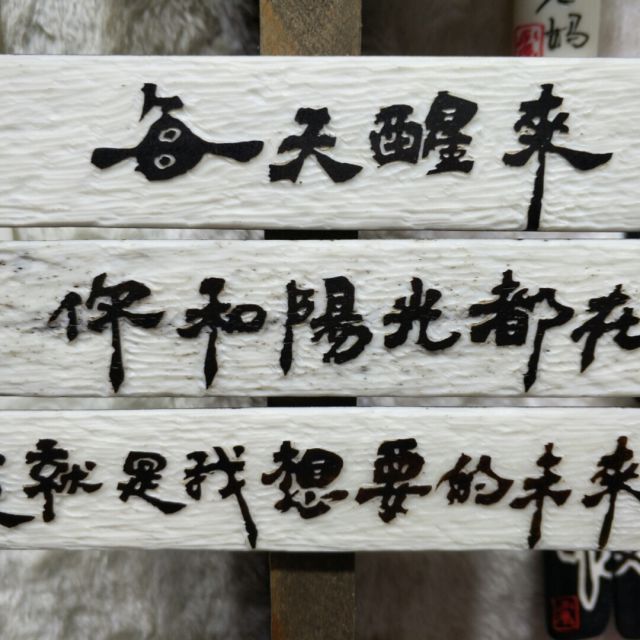 每天醒来
你和陽光都在
就是我想要的未来
妈